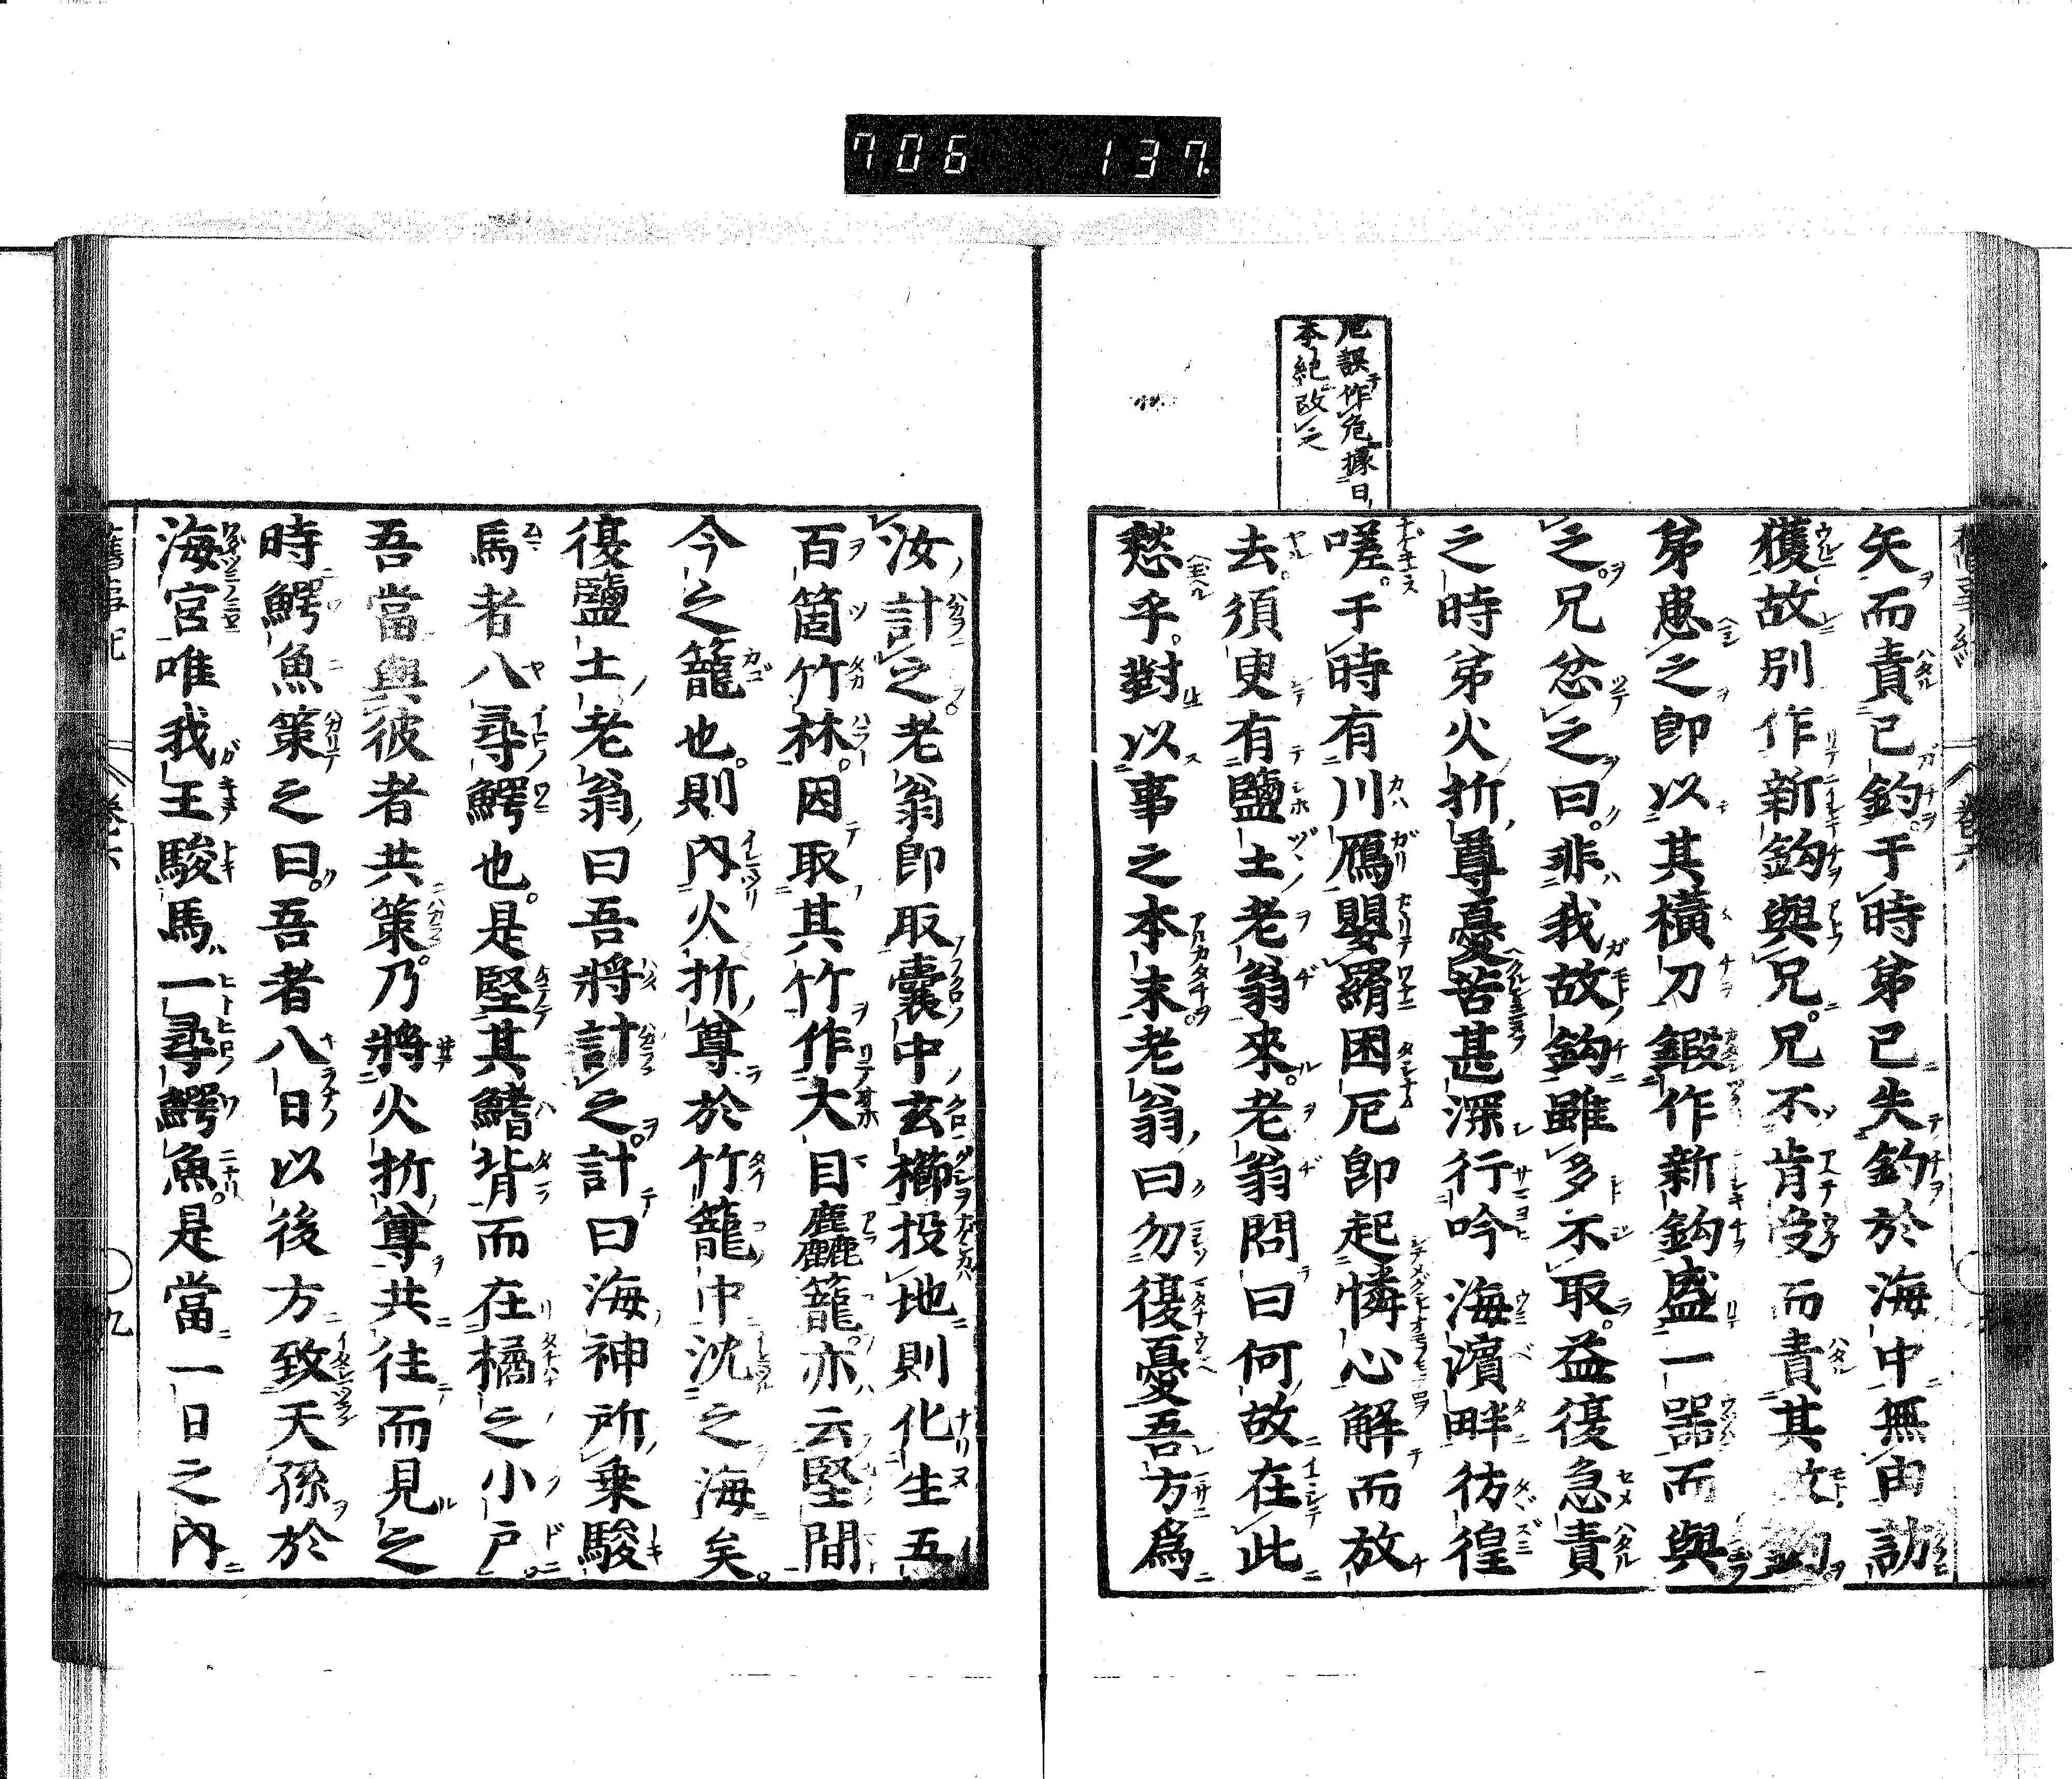 706 137
厄誤作危據日
本紀改之
矢而責已釣于時弟已失釣於海中無由訪
獲故別作新鈎與兄兄不肯受而責其故鈎
弟患之即以其横刀鍛作新鈎盛一器而與
之兄忿之曰非我故鈎雖多不取益復急責
之時弟火折尊憂苦甚深行吟海濱畔彷徨
嗟于時有川鴈嬰羂困厄即起憐心解而放
去須臾有鹽土老翁來老翁問曰何故在此
愁乎對以事之本末老翁曰勿復憂吾方爲
汝計之老翁即取囊中玄櫛投地則化生五
百箇竹林因取其竹作大目麤籠亦云堅間
今之籠也則内火折尊於竹籠中沈之海矣
復鹽土老翁曰吾將計之計曰海神所乗駿
馬者八尋鰐也是堅其鰭背而在橘之小戸
吾當與彼者共策乃將火折尊共往而見之
時鰐魚策之曰吾者八日以後方致天孫於
海宮唯我王駿馬一尋鰐魚是當一日之内
九